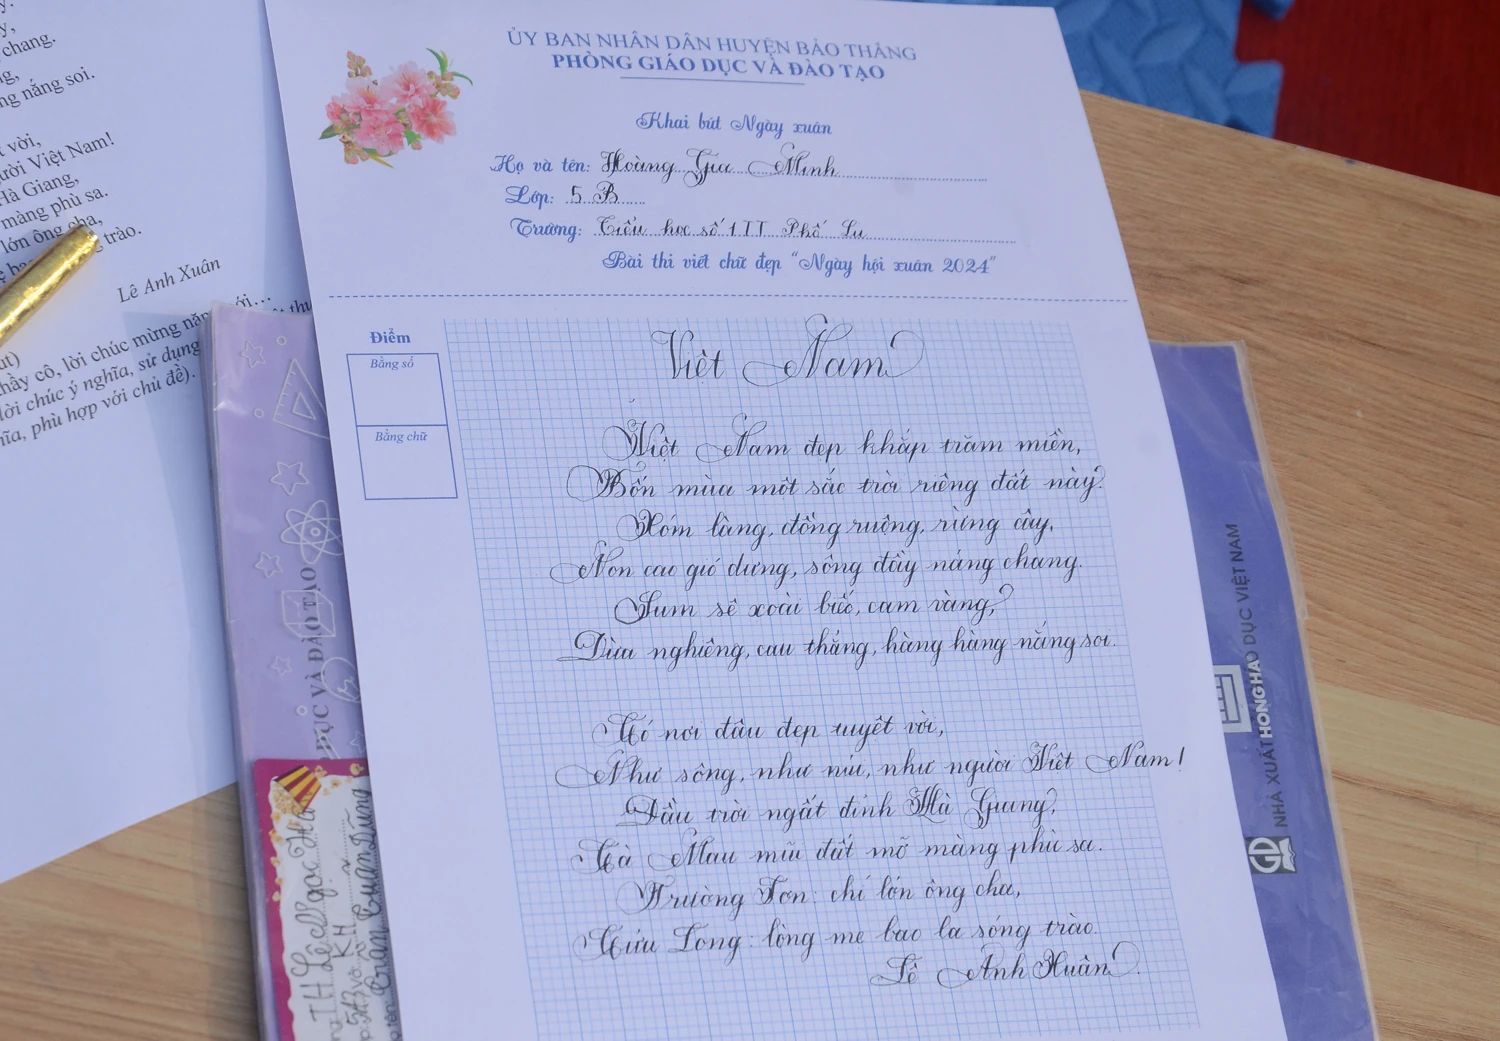 chang.
nắng soi.
vời,
Việt Nam!
Hà Giang,
màng phù sa.
lớn ông cha,
trào.
Lê Anh Xuân
lời chúc mừng năm mới…
thầy cô, lời chúc
lời chúc ý nghĩa, sử dụng
phù hợp với chủ đề).
ỦY BAN NHÂN DÂN HUYỆN BẢO THẮNG
PHÒNG GIÁO DỤC VÀ ĐÀO TẠO
Khai bút Ngày xuân
Họ và tên: Hoàng Gia Minh
Lớp: 5 B
Trường: Tiểu học số 1 TT Phố Lu
Bài thi viết chữ đẹp "Ngày hội xuân 2024"
Điểm
Bằng số
Bằng chữ
Việt Nam
Việt Nam đẹp khắp trăm miền,
Bốn mùa một sắc trời riêng đất này.
Xóm làng, đồng ruộng, rừng cây,
Non cao gió dựng, sông đầy nắng chang.
Sum sê xoài biếc, cam vàng,
Dừa nghiêng, cau thẳng, hàng hàng nắng soi.
Có nơi đâu đẹp tuyệt vời,
Như sông, như núi, như người Việt Nam!
Đầu trời ngất đỉnh Hà Giang,
Cà Mau mũi đất mỡ màng phù sa.
Trường Sơn: chí lớn ông cha,
Cửu Long: lòng mẹ bao la sóng trào.
Lê Anh Xuân.
DỤC VÀ ĐÀO TẠO
Trần Tuấn Dũng
NHÀ XUẤT
DỤC VIỆT NAM
HONG HA
GD